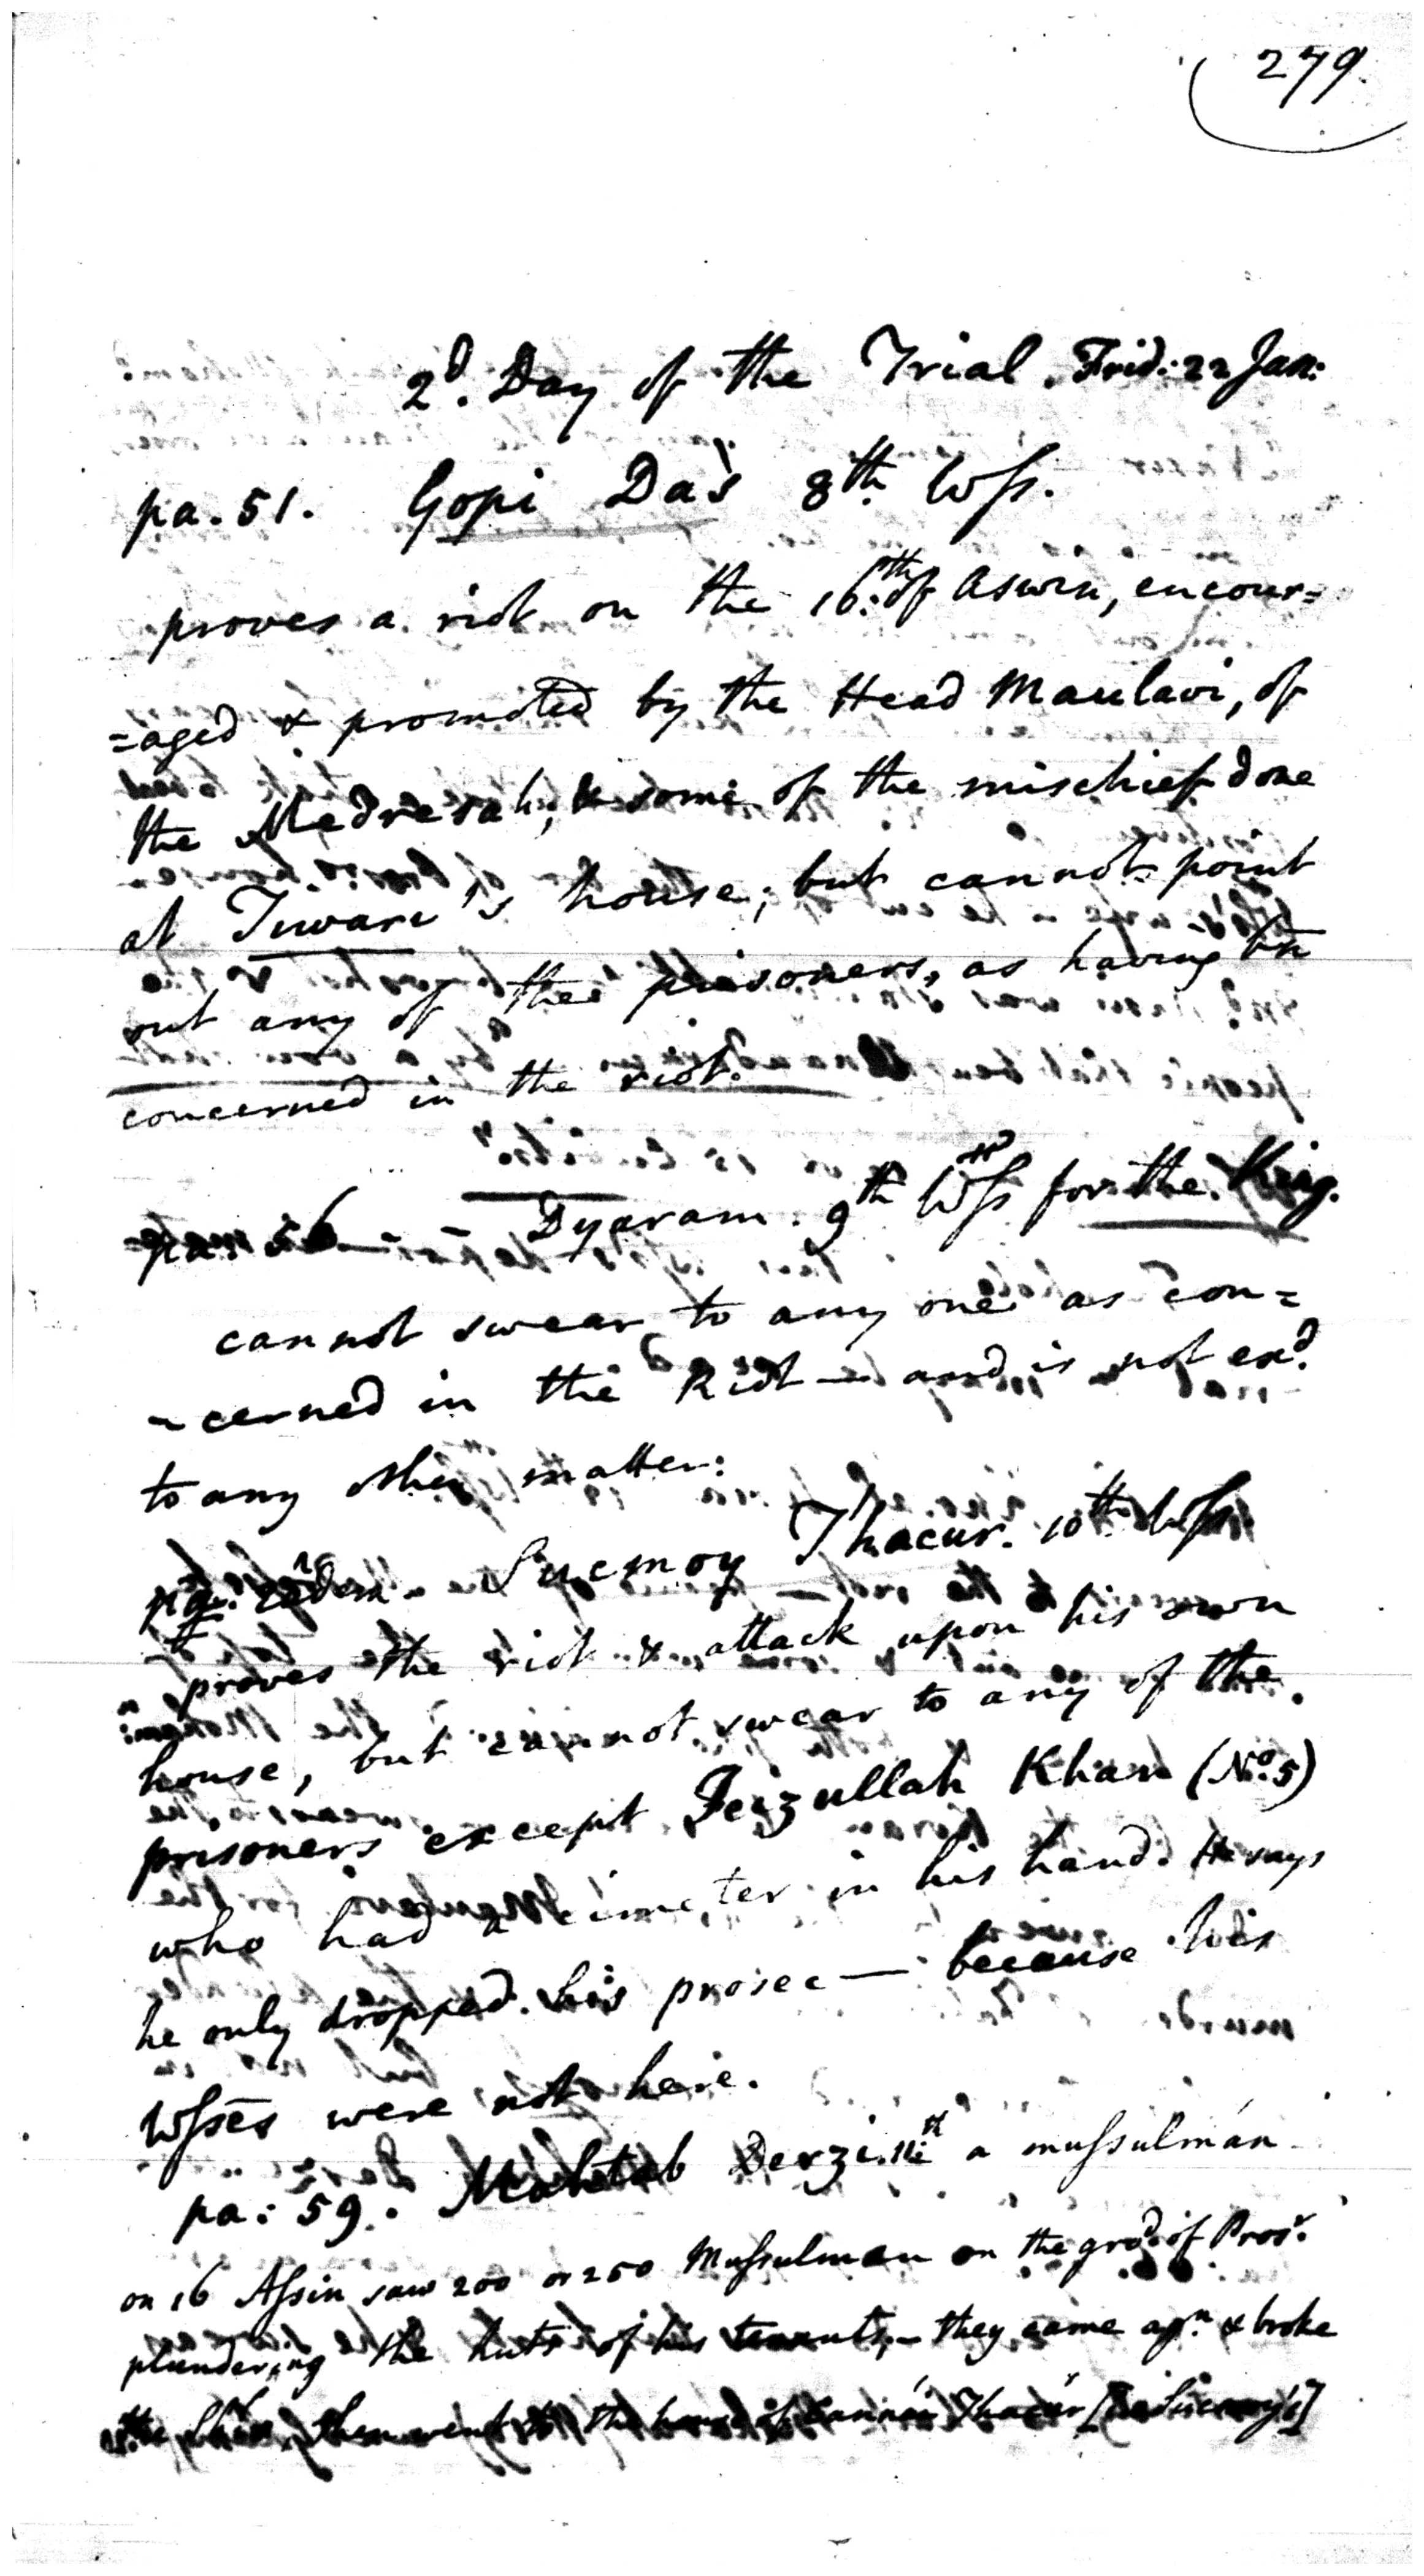 279.
2d. Day of the Trial. Frid: 22 Jan:
pa. 51. Gopi Dás 8th Wss.
proves a riot on the 16th of Aswin, encour=
=aged & promoted by the Head Maulavi, of
the Medresah, & some of the mischief done
at Tiwari's house; but cannot point
out any of the prisoners, as having bn
concerned in the riot.
pa. 56 - - Dyaram. 9th Wss for the King.
cannot swear to any one as con=
-cerned in the Riot — and is not exd.
to any other matter:
pa. eadem - Sucmoy Thacur. 10th Wss.
proves the riot & attack upon his own
house, but cannot swear to any of the
prisoners except Feizullah Khan (No. 5)
who had a cimeter in his hand. He says
he only dropped his prosec — because his
Wsses were not here.
pa: 59. Mahtab Derzi. 11th a mussulmán
on 16 Assin saw 200 or 250 Mussulman on the grd. of Prosr.
plundering the huts of his tenants,- they came agn. & broke
the then went to the house of Thacur